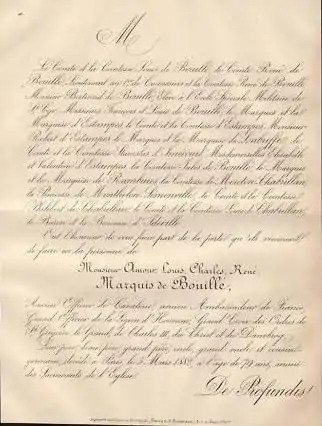 M
Le Comte et la Comtesse Louis de Bouillé, le Comte René de
Bouillé, Lieutenant au de Cuirassiers et la Comtesse René de Bouillé,
Monsieur Bertrand de Bouillé, Elève à l'Ecole Spéciale Militaire de
St Cyr, Messieurs François et Louis de Bouillé, le Marquis et la
Marquise d'Estampes, le Comte et la Comtesse d'Estampes, Monsieur
Robert d'Estampes, le Marquis et la Marquise de
Comte et la Comtesse d' Mesdemoiselles Elisabeth
et Valentine d'Estampes, la Comtesse Jules de Bouillé, le Marquis
et la Marquise de la Comtesse de Moreton Chabrillan,
la Princesse de le Comte et la Comtesse
de Chabrillan, le Comte et la Comtesse Louis de Chabrillan,
le Baron et la Baronne d'
Ont l'honneur de vous faire part de la perte qu'ils viennent
de faire en la personne de
Monsieur Amour, Louis, Charles, René
Marquis de Bouillé,
Ancien Officier de Cavalerie, ancien Ambassadeur de France,
Grand Officier de la Légion d'Honneur, Grand Croix des Ordres de
St Grégoire le Grand, de Charles III, du Christ et du Danebrog,
Leur père, beau-père, grand-père, oncle, grand-oncle et cousin
germain, décédé à Paris, le 5 Mars 1882, à l'âge de 79 ans, muni
des Sacrements de l'Eglise.
De Profundis!